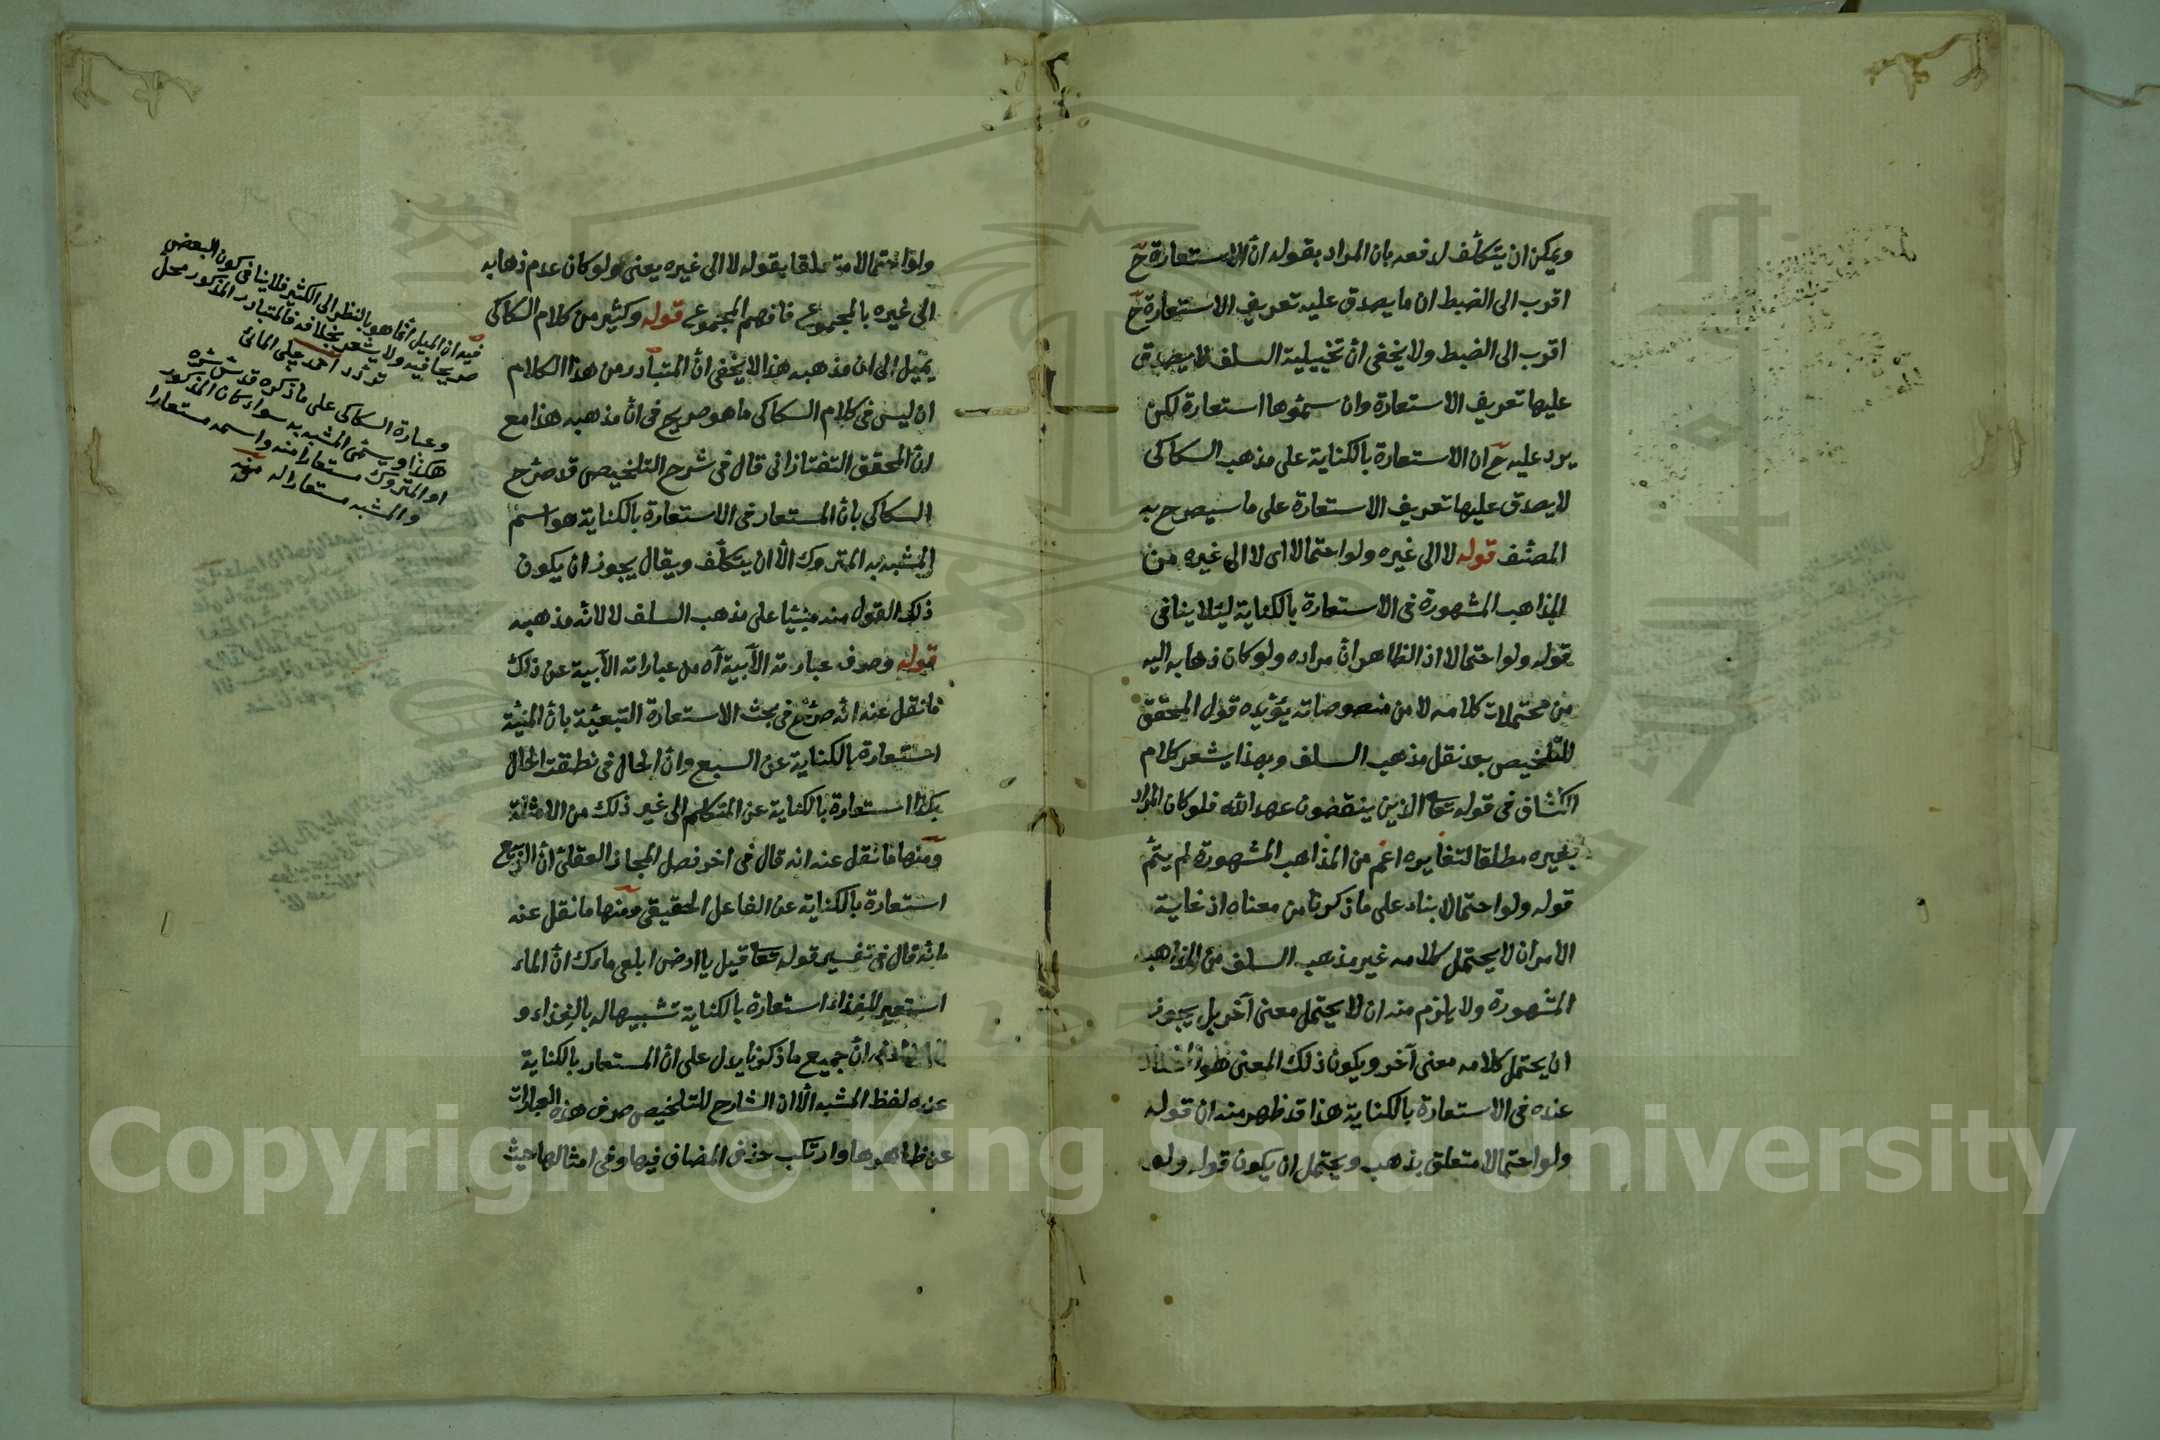 ويمكن ان يتكلف لدفعه بان المراد بقوله ان الاستعارة ح
اقرب الى الضبط ان ما يصدق عليه تعريف الاستعارة ح
اقرب الى الضبط ولا يخفى ان تخييلية السلف لا يصدق
عليها تعريف الاستعارة وان سموها استعارة لكن
يرد عليه ح ان الاستعارة بالكناية على مذهب السكاكى
لا يصدق عليها تعريف الاستعارة على ما سيصرح به
المصنف قوله لا الى غيره ولو احتمالا اى لا الى غيره من
المذاهب المشهورة فى الاستعارة بالكناية ليلا ينافى
قوله ولو احتمالا اذ الظاهر ان مراده ولو كان ذهابه اليه
من محتملات كلامه لا من منصوصاته يؤيده قول المحقق
للتلخيص بعد نقل مذهب السلف وبهذا يشعر كلام
الكشاف فى قوله تعا الذين ينقضون عهد الله فلو كان المراد
بغيره مطلقا لتغايره اعم من المذاهب المشهورة لم يتم
قوله ولو احتمالا بناء على ما ذكرنا من معناه اذ غاية
الامر ان لا يحتمل كلامه غير مذهب السلف من المذاهب
المشهورة ولا يلزم منه ان لا يحتمل معنى آخر بل يجوز
ان يحتمل كلامه معنى آخر ويكون ذلك المعنى هو
عنده فى الاستعارة بالكناية هذا قد ظهر منه ان قوله
ولو احتمالا متعلق بذهب ويحتمل ان يكون قوله ولو
ولو احتمالا متعلقا بقوله لا الى غيره يعنى ولو كان عدم ذهابه
الى غيره بالمجموع فافهم المجموع قوله وكثير من كلام السكاكى
يميل الى ان مذهبه هذا لا يخفى ان المتبادر من هذا الكلام
ان ليس فى كلام السكاكى ما هو صريح فى ان مذهبه هذا مع
ان المحقق التفتازانى قال فى شرح التلخيص قد صرح
السكاكى بان المستعار فى الاستعارة بالكناية هو اسم
المشبه به المتروك الا ان يتكلف ويقال يجوز ان يكون
ذلك القول منه مبنيا على مذهب السلف لا لانه مذهبه
قوله وصرف عبارته الآبية آه من عباراته الآبية عن ذلك
ما نقل عنه انه صرح فى بحث الاستعارة التبعية بان المنية
استعارة بالكناية عن السبع وان الحال فى نطقت الحال
بكذا استعارة بالكناية عن المتكلم الى غير ذلك من الامثلة
ومنها ما نقل عنه انه قال فى اخر فصل المجاز العقلى ان الربيع
استعارة بالكناية عن الفاعل الحقيقى ومنها ما نقل عنه
انه قال فى تفسير قوله تعا قيل يا ارض ابلعى ماءك ان الماء
استعير للغذاء استعارة بالكناية تشبيها له بالغذاء و
ان جميع ما ذكرنا يدل على ان المستعار بالكناية
عنده لفظ المشبه الا ان الشارح للتلخيص صرف هذه العبارات
عن ظاهرها وارتكب حذف المضاف فيها وفى امثالها حيث
فيه ان الميل انما هو بالنظر الى الكثير فلا ينافى كون البعض
صريحا فيه ولا يشعر بخلافه فالمتبادر المذكور محل
تردد احمد چلبى
وعبارة السكاكى على ما ذكره قدس سره
هكذا ويسمى المشبه به سواء كان المذكور
او المتروك مستعارا منه واسمه مستعارا
والمشبه مستعارا له منه
Copyright © King Saud University